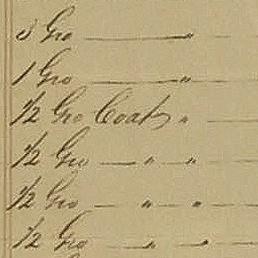 3 Gro — "
1 Gro — "
1/2 Gro Coats " —
1/2 Gro — " " —
1/2 Gro — " — " —
1/2 Gro — " — " —